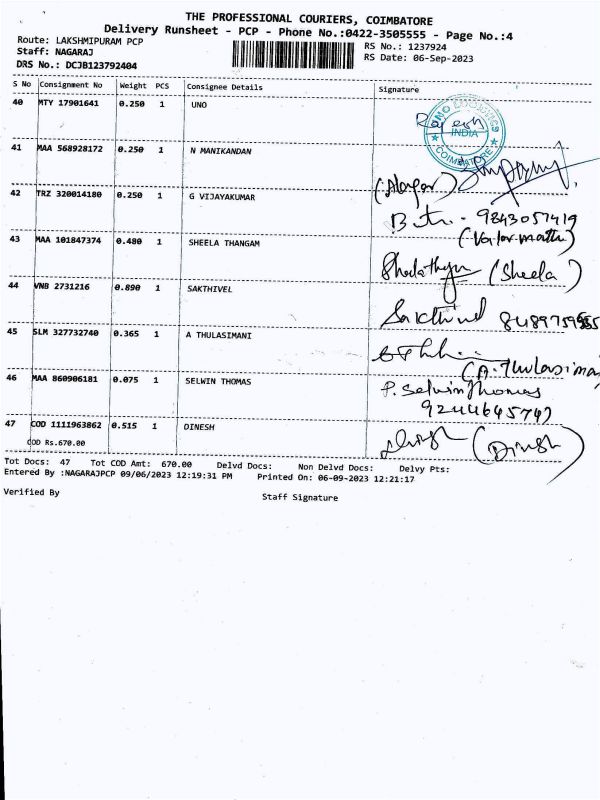 THE PROFESSIONAL COURIERS, COIMBATORE
Delivery Runsheet - PCP - Phone No.:0422-3505555 - Page No.:4
Route: LAKSHMIPURAM PCP
RS No.: 1237924
Staff: NAGARAJ
RS Date: 06-Sep-2023
DRS No.: DCJB123792404
S No Consignment No Weight PCS Consignee Details Signature
40 MTY 17901641 0.250 1 UNO
Rajesh
INDIA
COIMBATORE
41 MAA 568928172 0.250 1 N MANIKANDAN
42 TRZ 320014180 0.250 1 G VIJAYAKUMAR
9843057419
43 MAA 101847374 0.480 1 SHEELA THANGAM
(Sheela)
44 VNB 2731216 0.890 1 SAKTHIVEL
Sakthivel
45 SLM 327732740 0.365 1 A THULASIMANI
(A. Thulasimani
46 MAA 860906181 0.075 1 SELWIN THOMAS
P. Selwin Thomas
9244645747
47 COD 1111963862 0.515 1 DINESH
COD Rs.670.00
(Dinesh)
Tot Docs: 47 Tot COD Amt: 670.00 Delvd Docs: Non Delvd Docs: Delvy Pts:
Entered By :NAGARAJPCP 09/06/2023 12:19:31 PM Printed On: 06-09-2023 12:21:17
Verified By Staff Signature